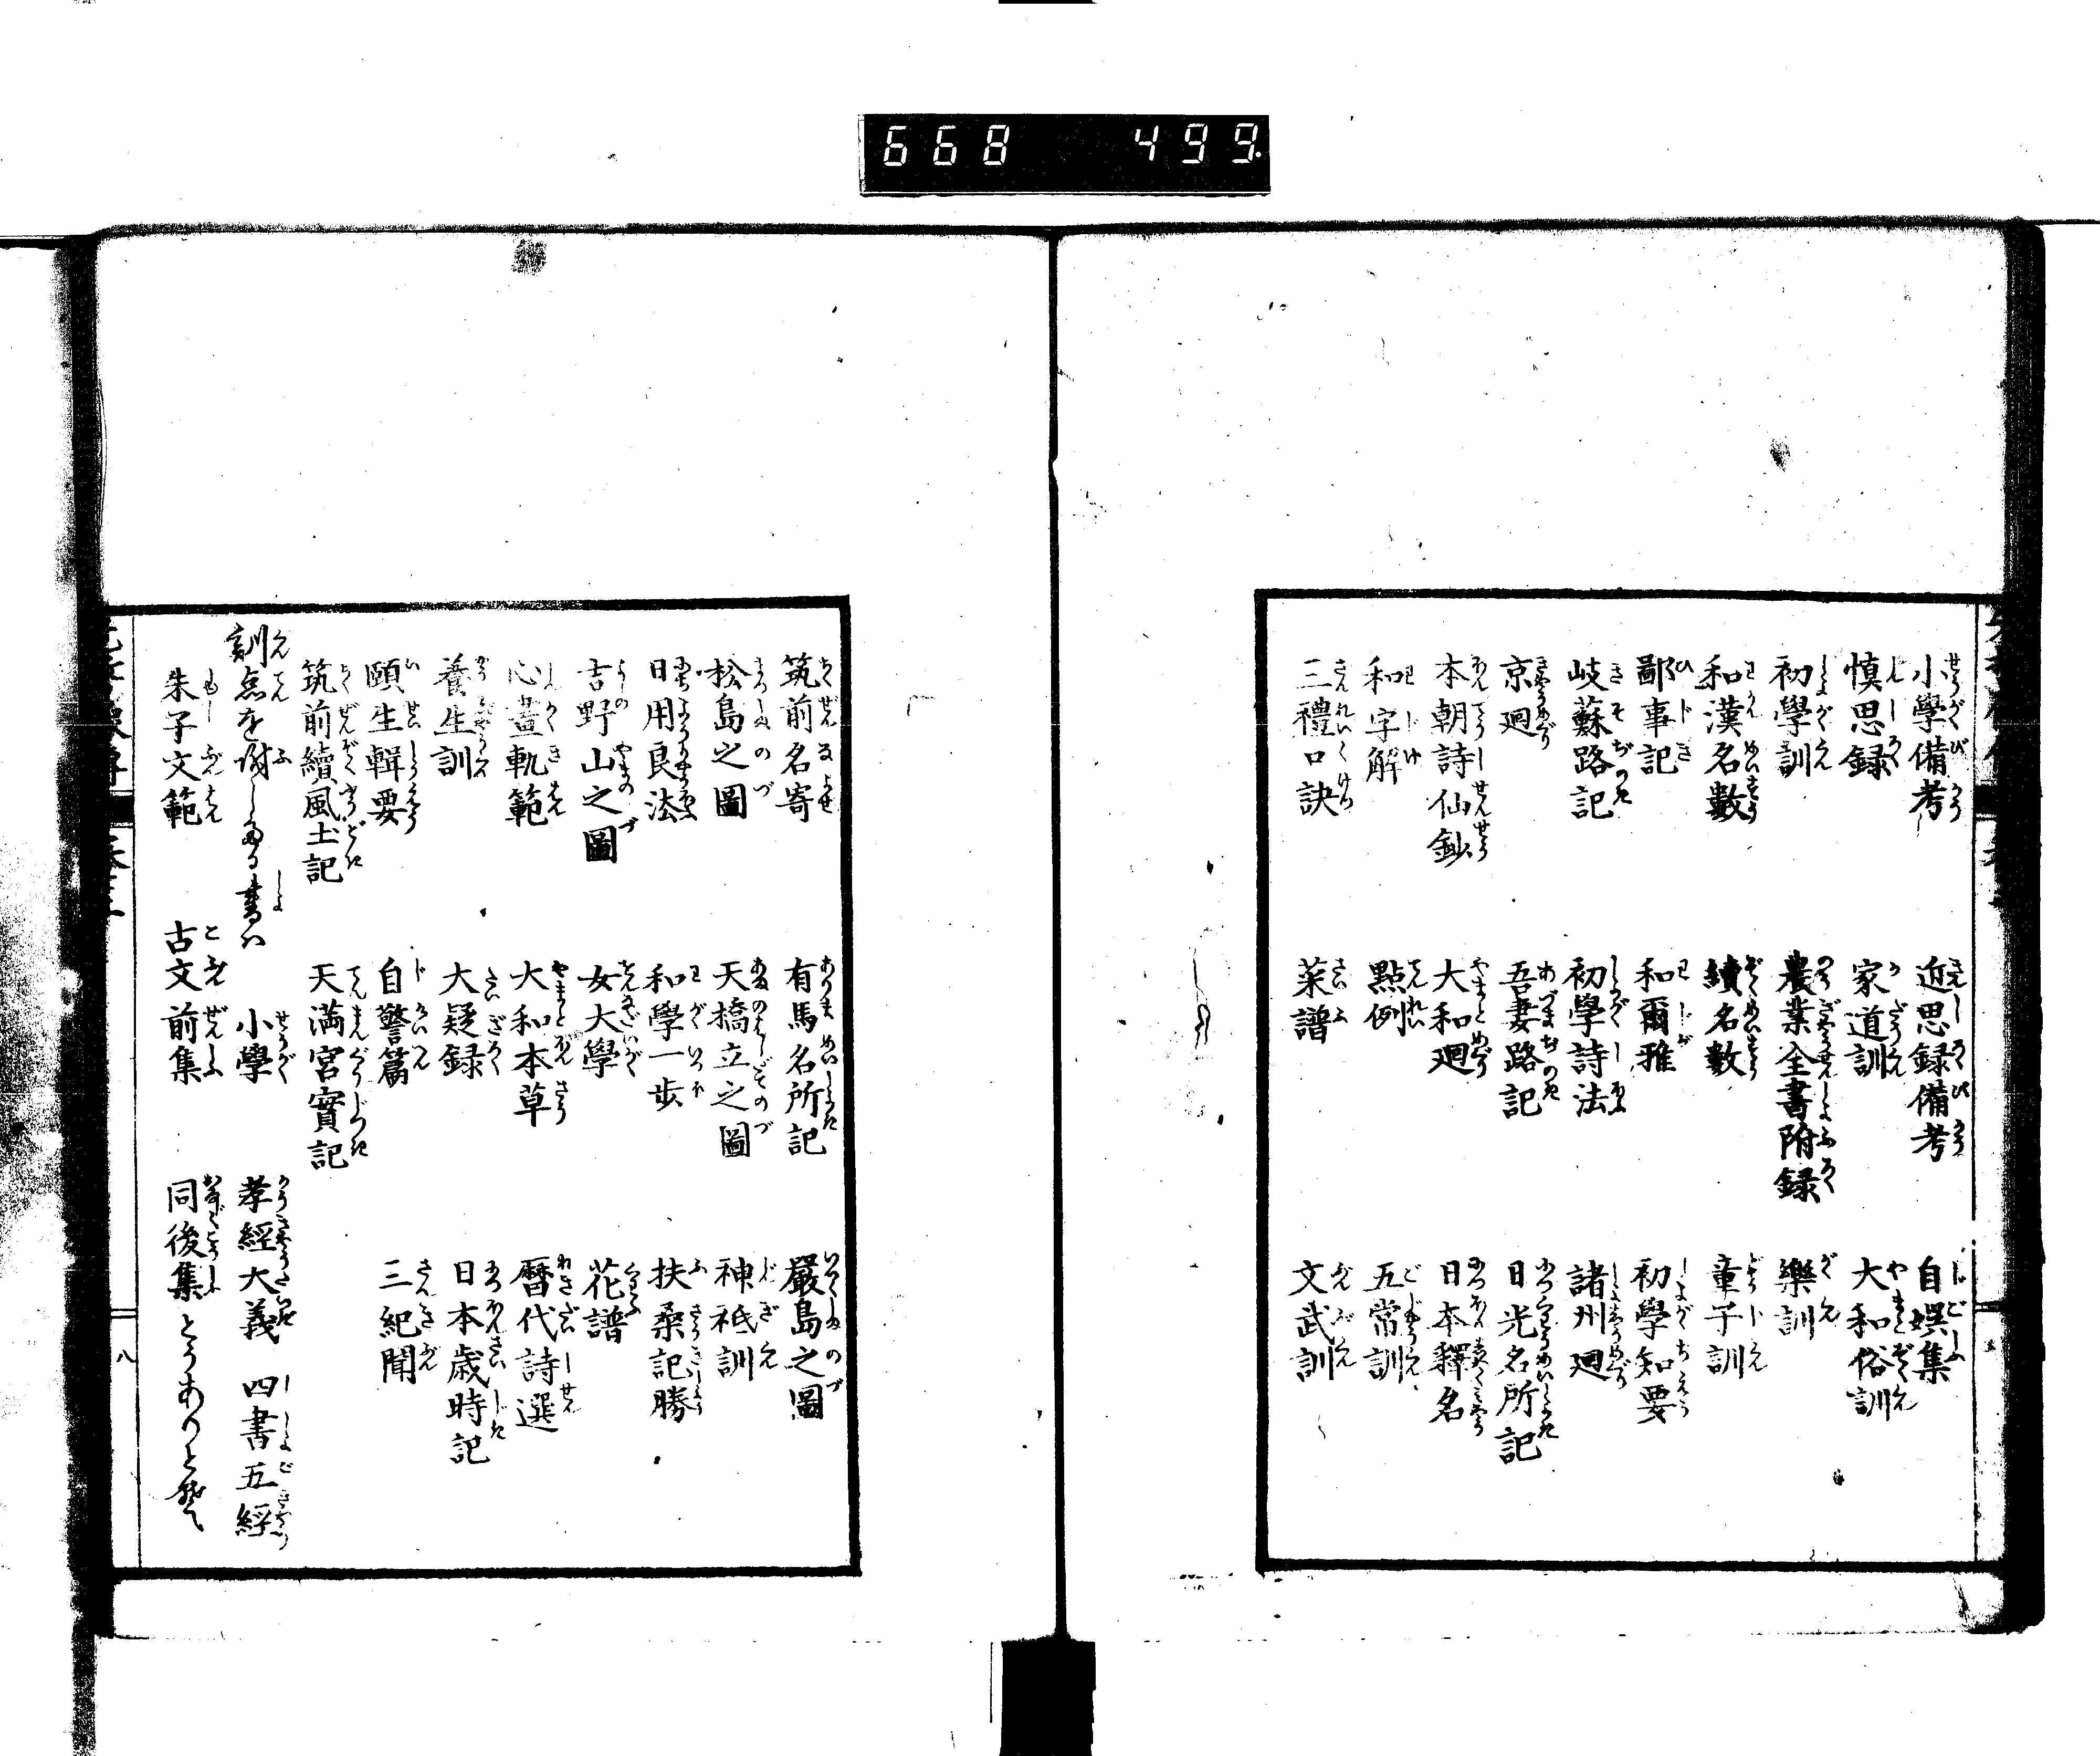 668 499
小學備考 近思録備考 自娯集
慎思録 家道訓 大和俗訓
初學訓 農業全書附録 樂訓
和漢名數 續名數 童子訓
鄙事記 和爾雅 初學知要
岐蘇路記 初學詩法 諸州廻
京廻 吾妻路記 日光名所記
本朝詩仙鈔 大和廻 日本釋名
和字解 點例 五常訓
三禮口訣 菜譜 文武訓
筑前名寄 有馬名所記 嚴島之圖
松島之圖 天橋立之圖 神祇訓
日用良法 和學一歩 扶桑記勝
吉野山之圖 女大學 花譜
心畫軌範 大和本草 暦代詩選
養生訓 大疑録 日本歳時記
頤生輯要 自警篇 三紀聞
筑前續風土記 天満宮實記
訓点を附したる書ハ 小學 孝經大義 四書五經
朱子文範 古文前集 同後集とうありと聲
八